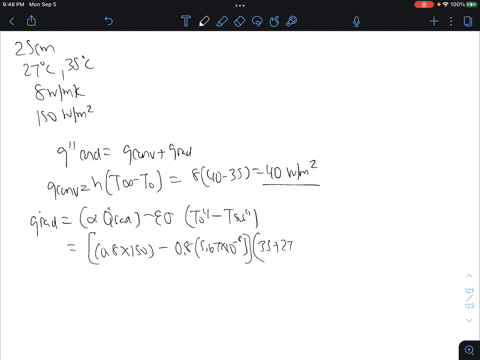 9:48 PM Mon Sep 5
100%
25cm
27°C, 35°C
8w/mk
150 w/m²
q"cond = qconv + qrad
qconv = h(T∞-T₀) = 8(40-35) = 40 w/m²
q̇rad = (α Q̇rad) - εσ (T₀⁴ - Tsu⁴)
= [(0.8×150) - 0.8(5.67×10⁻⁸)](35+27
121
122